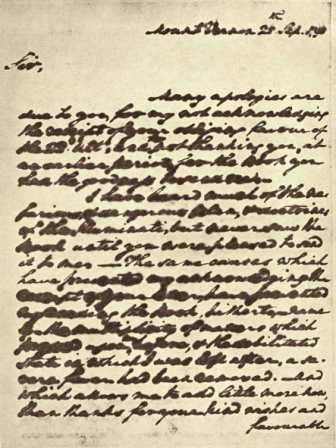 Mount Vernon 25th Sep. 1798
Sir,
Many apologies are
due to you, for my not acknowledging
the receipt of your obliging favour of
the 22d Ult; and for not thanking you, at
an earlier period, for the Book you
had the goodness to send me.
I have heard much of the ne-
farious, & dangerous plan, & doctrines
of the Illuminati, but never saw the
Book until you were pleased to send
it to me. — The same causes which
have prevented my acknowledging the
receipt of your letter, have prevented
my reading the Book, hitherto; namely
the multiplicity of matters which
pressed upon me before, & the debilitated
state in which I was left after, a se-
vere fever had been removed. And
which allows me to add little more now,
than thanks for your kind wishes and
favourable